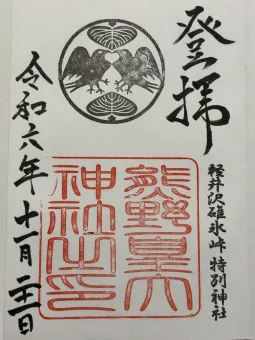 登拝
軽井沢碓氷峠 特別神社
熊野皇大
神社之印
令和六年十一月二十一日